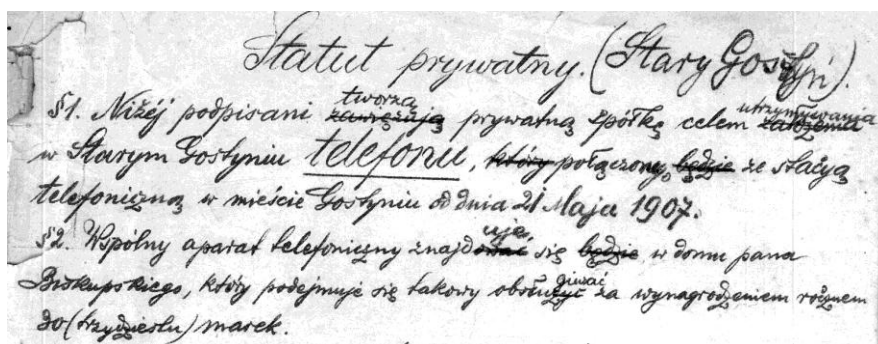 Statut prywatny. (Stary Gostyń).
§1. Niżéj podpisani zawięzują tworzą prywatną spółkę celem założenia utrzymywania
w Starym Gostyniu telefonu, który połączony, będzie ze stacyą
telefoniczną w mieście Gostyniu od dnia 21 Maja 1907.
§2. Wspólny aparat telefoniczny znajdować uje się będzie w domu pana
Biskupskiego, który podejmuje się takowy obsłużyć giwać za wynagrodzeniem rocznem
30 (trzydziestu) marek.